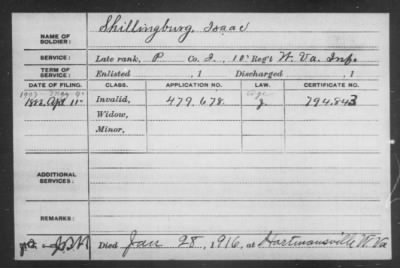 NAME OF SOLDIER: Shillingburg, Isaac
SERVICE: Late rank, P Co. I, 10" Reg't W. Va. Inf.
TERM OF SERVICE: Enlisted , 1 Discharged , 1
DATE OF FILING. CLASS. APPLICATION NO. LAW. CERTIFICATE NO.
1907 May Age
Apr 11 Invalid, 479,678 794.843
Widow,
Minor,
ADDITIONAL SERVICES:
REMARKS:
Died Jan 28, 1916, at Hartmansville W. Va